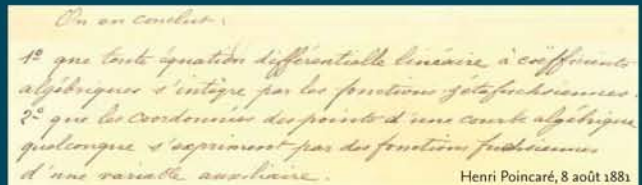 On en conclut :
1º que toute équation différentielle linéaire à coëfficients
algébriques s'intègre par les fonctions zétafuchsiennes.
2º que les coordonnées des points d'une courbe algébrique
quelconque s'expriment par des fonctions fuchsiennes
d'une variable auxiliaire.
Henri Poincaré, 8 août 1881